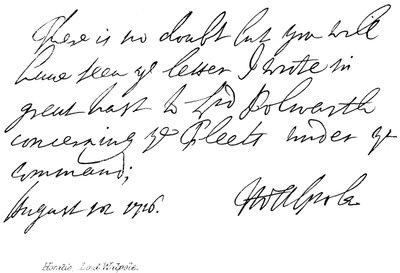 There is no doubt but you will
have seen ye letter I wrote in
great hast to Lrd Polwarth
concerning ye Fleets under ye
command;
August 1716.
H Walpole
Horatio, Lord Walpole.